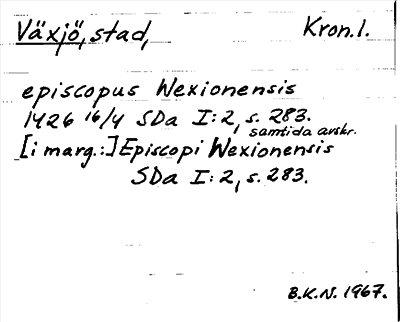 Växjö, stad, Kron.l.
episcopus Wexionensis
1426 16/4 SDa I:2, s. 283.
samtida avskr.
[i marg.:] Episcopi Wexionensis
SDa I:2, s. 283.
B.K.N. 1967.